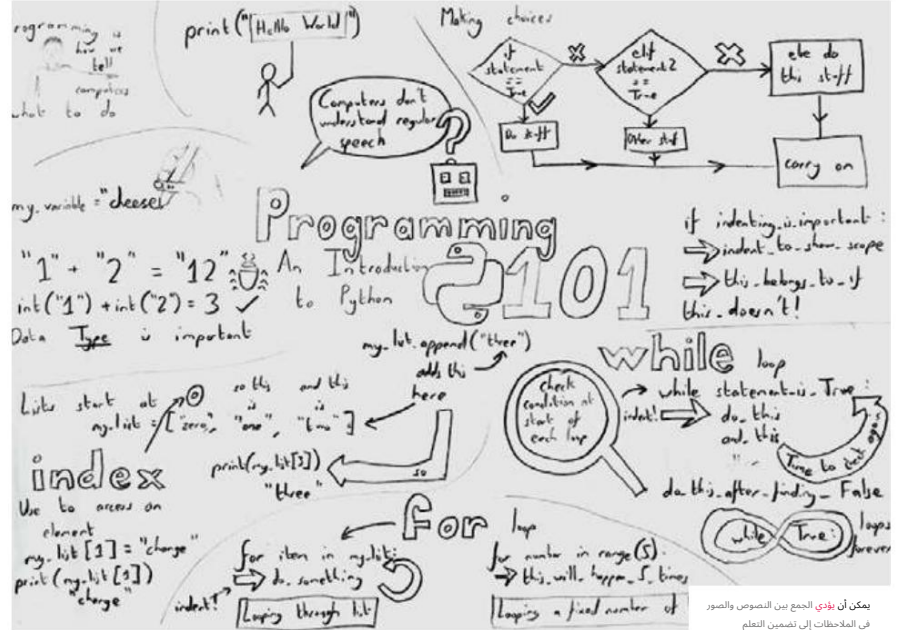 rogramming is
how we
tell
computers
what to do
print("Hello World")
Computers don't
understand regular
speech
?
Making choices
if
statement
==
True
elif
statement2
==
True
else do
this stuff
Do stuff
Other stuff
carry on
my_variable = "cheese"
"1" + "2" = "12"
int("1") + int("2") = 3 ✓
Data Type is important
Programming
101
An Introduction
to Python
if indenting_is_important :
indent_to_show_scope
this_belongs_to_if
this_doesn't!
Lists start at 0
so this
is
and this
is
my_list = ["zero", "one", "two"]
my_list.append("three")
adds this
here
so
print(my_list[3])
"three"
index
Use to access an
element
my_list[1] = "change"
print(my_list[1])
"change"
while loop
check
condition at
start of
each loop
while statement_is_True :
indent!
do_this
and_this
Time to check again
do_this_after_finding_False
while True :
loops
forever
for loop
for item in my_list:
do_something
indent!
Looping through list
for number in range(5) :
this_will_happen_5_times
Looping a fixed number of
يمكن أن يؤدي الجمع بين النصوص والصور
في الملاحظات إلى تضمين التعلم